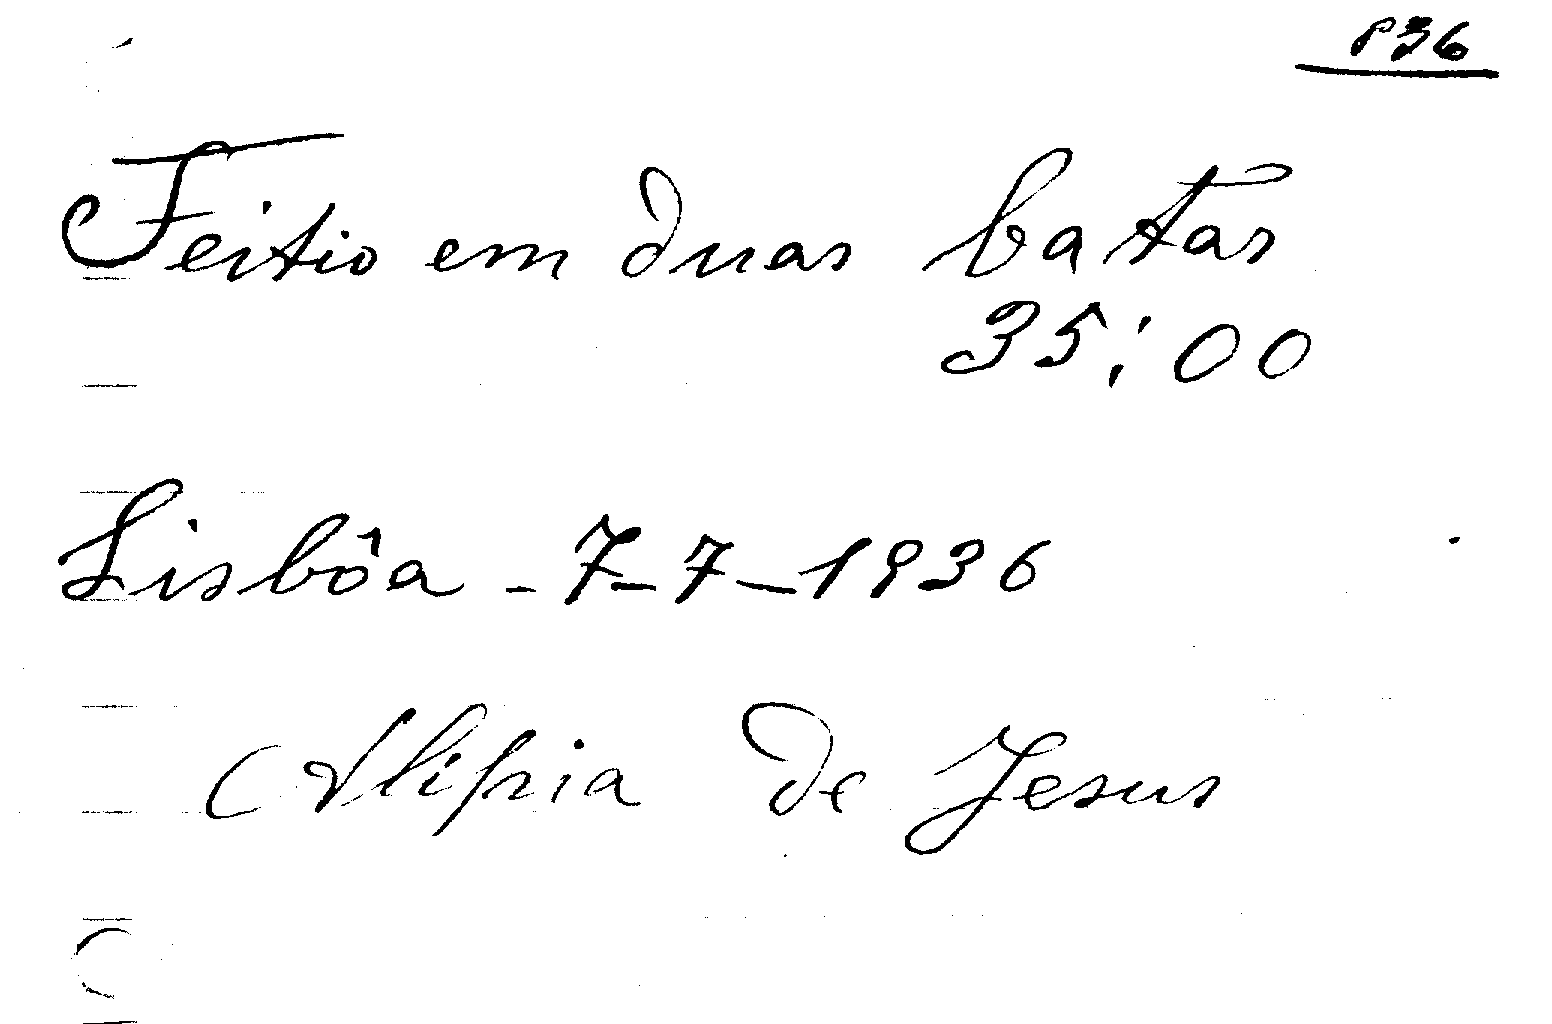 836
Feitio em duas batas
35:00
Lisbôa - 7-7-1936
Alipia de Jesus